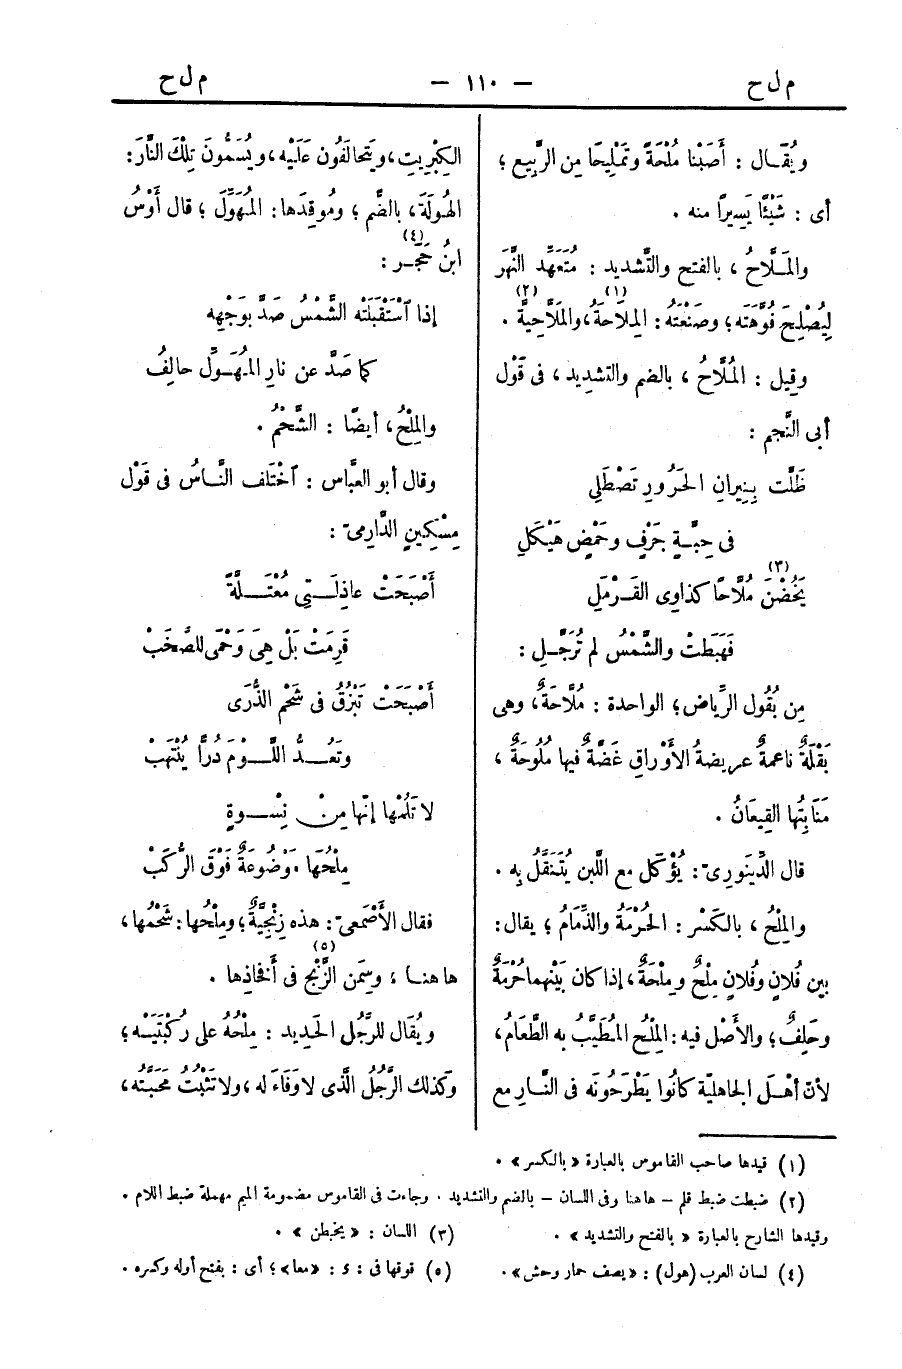 م ل ح — ١١٠ — م ل ح
ويُقَال : أَصَبْنا مُلْحَةً وتَمْلِيحًا مِن الرَّبِيع ؛
أى : شَيْئًا يَسِيرًا منه .
والمَلَّاحُ ، بالفتح والتَّشديد : مُتَعَهِّد النَّهَر
لِيُصْلِحَ فُوَّهَتَه ؛ وصَنْعَتُه : المِلَاحَةُ (١) ، والمَلَّاحِيَّةُ (٢) .
وقِيل : المُلَّاحُ ، بالضم والتشديد ، فى قَوْل
أبى النَّجم :
ظَلَّت بِنِيرانِ الحَرُورِ تَصْطَلِى
فى حِبَّةٍ جَرْفٍ وحَمْضٍ هَيْكَلِ
يَخُضْنَ (٣) مُلَّاحًا كذاوِى القَرْمَلِ
فَهَبَطَتْ والشَّمْسُ لم تُرَجَّلِ :
مِن بُقُول الرِّياض ؛ الواحدة : مُلَّاحَةٌ ، وهى
بَقْلَةٌ ناعمةٌ عريضةُ الأَوْراقِ غَضَّةٌ فيها مُلُوحَةٌ ،
مَنَابِتُها القِيعَانُ .
قال الدِّينَورِىّ : يُؤْكَل مع اللَّبن يُتَنَقَّلُ بِه .
والمِلْحُ ، بالكَسْر : الحُرْمَةُ والذِّمَامُ ؛ يقال :
بين فُلَانٍ وفُلانٍ مِلْحٌ ومِلْحَةٌ ، إذا كان بَيْنَهما حُرْمَةٌ
وحَلِفٌ ؛ والأَصْل فيه : المِلْحُ المُطَيَّبُ به الطَّعَامُ ،
لأنّ أهْلَ الجاهليّة كانُوا يَطْرَحُونَه فى النَّارِ مع
الكِبْرِيتِ ، ويَتَحالَفُون عَلَيْه ، ويُسَمُّونَ تِلْكَ النَّارَ :
الهُولَةَ ، بالضَّم ؛ ومُوقِدَها : المُهَوِّلَ ؛ قال أَوْسُ
ابنُ حَجَر (٤) :
إذا اسْتَقْبَلَتْه الشَّمْسُ صَدَّ بوَجْهِه
كما صَدَّ عن نارِ المُهَوِّل حالِفُ
والمِلْحُ ، أيضًا : الشَّحْمُ .
وقال أبو العبَّاس : اخْتَلَف النَّاسُ فى قَوْل
مِسْكِينٍ الدَّارِمىّ :
أَصْبَحَتْ عاذِلَتِى مُعْتَلَّةً
قَرِمَتْ بَلْ هِىَ وَحْمَى للصَّخَبْ
أَصْبَحَتْ تَبْزُقُ فى شَحْمِ الذُّرَى
وتَعُدُّ اللَّوْمَ دُرًّا يُنْتَهَبْ
لا تَلُمْها إنّها مِنْ نِسْوةٍ
مِلْحُها مَوْضُوعَةٌ فَوْقَ الرُّكَبْ
فقال الأَصْمَعىّ : هذه زِنْجِيَّةٌ ؛ ومِلْحُها : شَحْمُها ،
هاهنا ؛ وسِمَن الزَّنْج (٥) فى أَفخاذِها .
ويُقَال للرَّجُل الحَديد : مِلْحُهُ على رُكْبَتَيْه ؛
وكذلك الرَّجُلُ الَّذى لا وَفَاءَ له ، ولا تَثْبُتُ مَحَبَّتُه ،
(١) قيدها صاحب القاموس بالعبارة « بالكسر » .
(٢) ضبطت ضبط قلم – هاهنا وفى اللسان – بالضم والتشديد . وجاءت فى القاموس مضمومة الميم مهملة ضبط اللام .
وقيدها الشارح بالعبارة « بالفتح والتشديد » . (٣) اللسان : « يخبطن » .
(٤) لسان العرب (هول) : « يصف حمار وحش » . (٥) فوقها فى : s : « معا » ؛ أى : بفتح أوله وكسره .